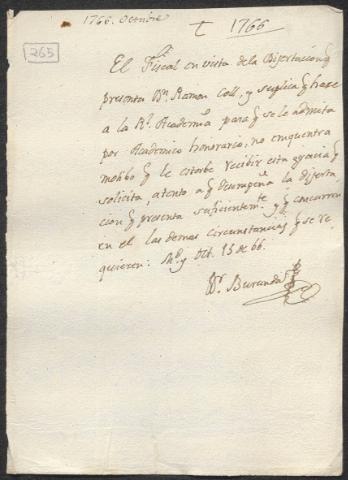 1766. Octubre
t 1766
265
El Fiscal en vista de la Disertacion q
presenta Dn. Ramon Coll, y suplica q hace
a la Rl. Academia para q se le admita
por Academico honorario, no encuentra
motibo q le estorbe recibir esta gracia q
solicita, atento a q desempeña la diserta
cion q presenta suficientemte. y q concurren
en el las demas circunstancias q se re
quieren: Md. y Oct. 15 de 66.